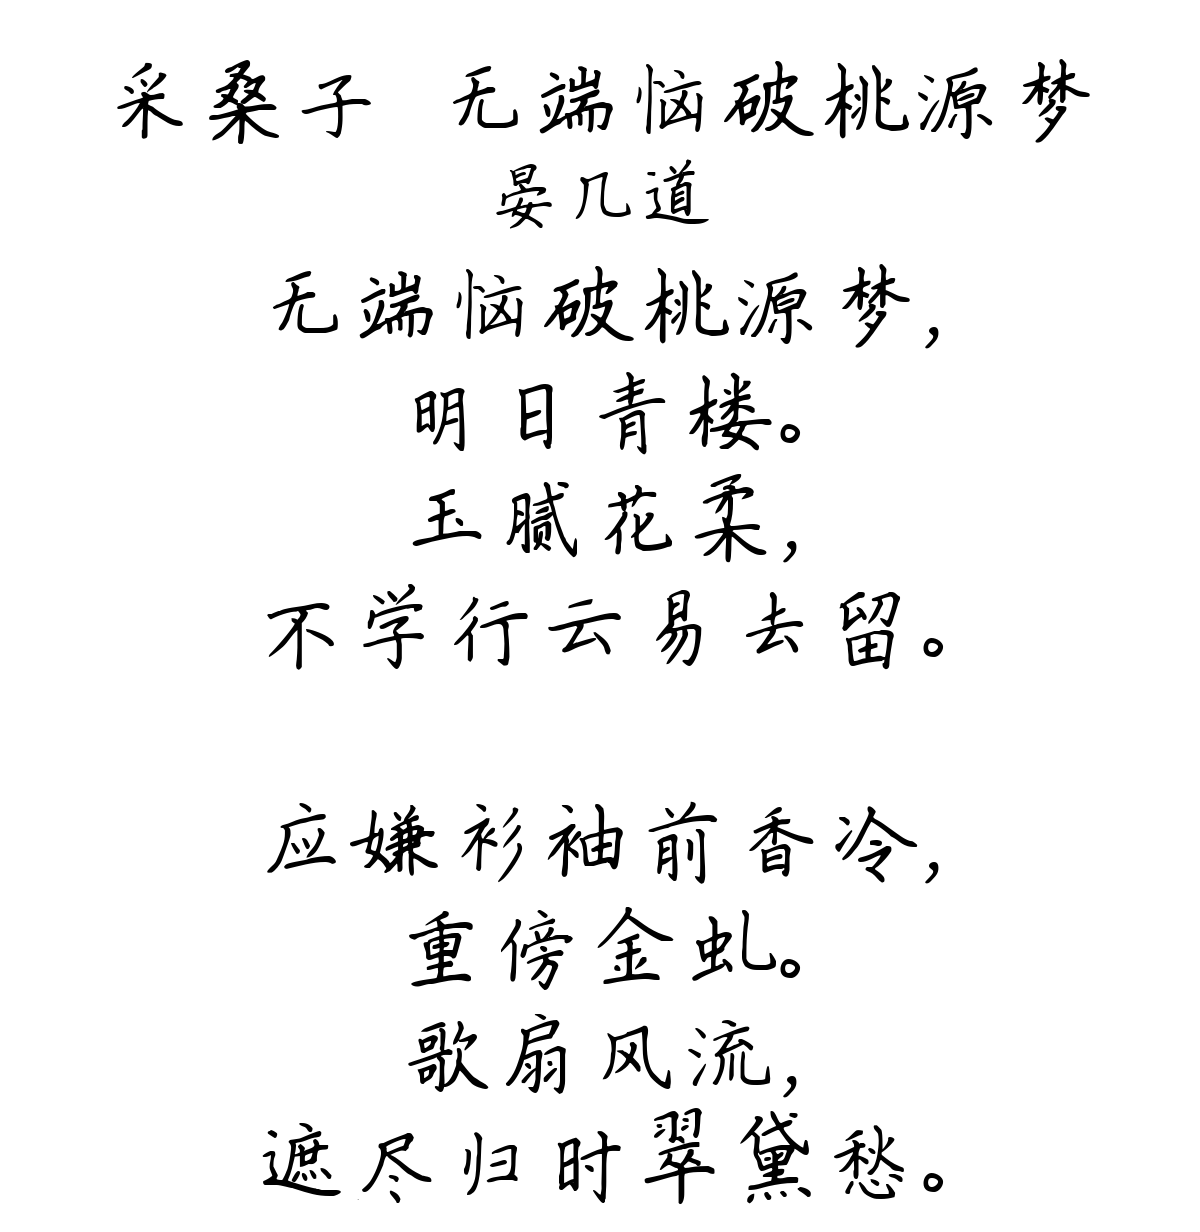 采桑子 无端恼破桃源梦
晏几道
无端恼破桃源梦，
明日青楼。
玉腻花柔，
不学行云易去留。
应嫌衫袖前香冷，
重傍金虬。
歌扇风流，
遮尽归时翠黛愁。